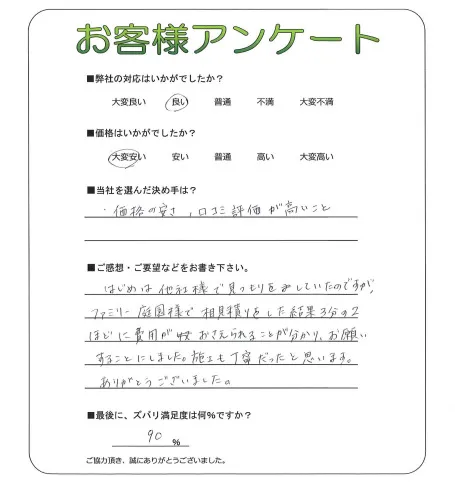 お客様アンケート
■弊社の対応はいかがでしたか？
大変良い 良い 普通 不満 大変不満
■価格はいかがでしたか？
大変安い 安い 普通 高い 大変高い
■当社を選んだ決め手は？
・価格の安さ，口コミ評価が高いこと
■ご感想・ご要望などをお書き下さい。
はじめは他社様で見つもりをしていたのですが、
ファミリー庭園様で相見積りをした結果3分の2
ほどに費用がおさえられることが分かり、お願い
することにしました。施工も丁寧だったと思います。
ありがとうございました。
■最後に、ズバリ満足度は何％ですか？
90 ％
ご協力頂き、誠にありがとうございました。